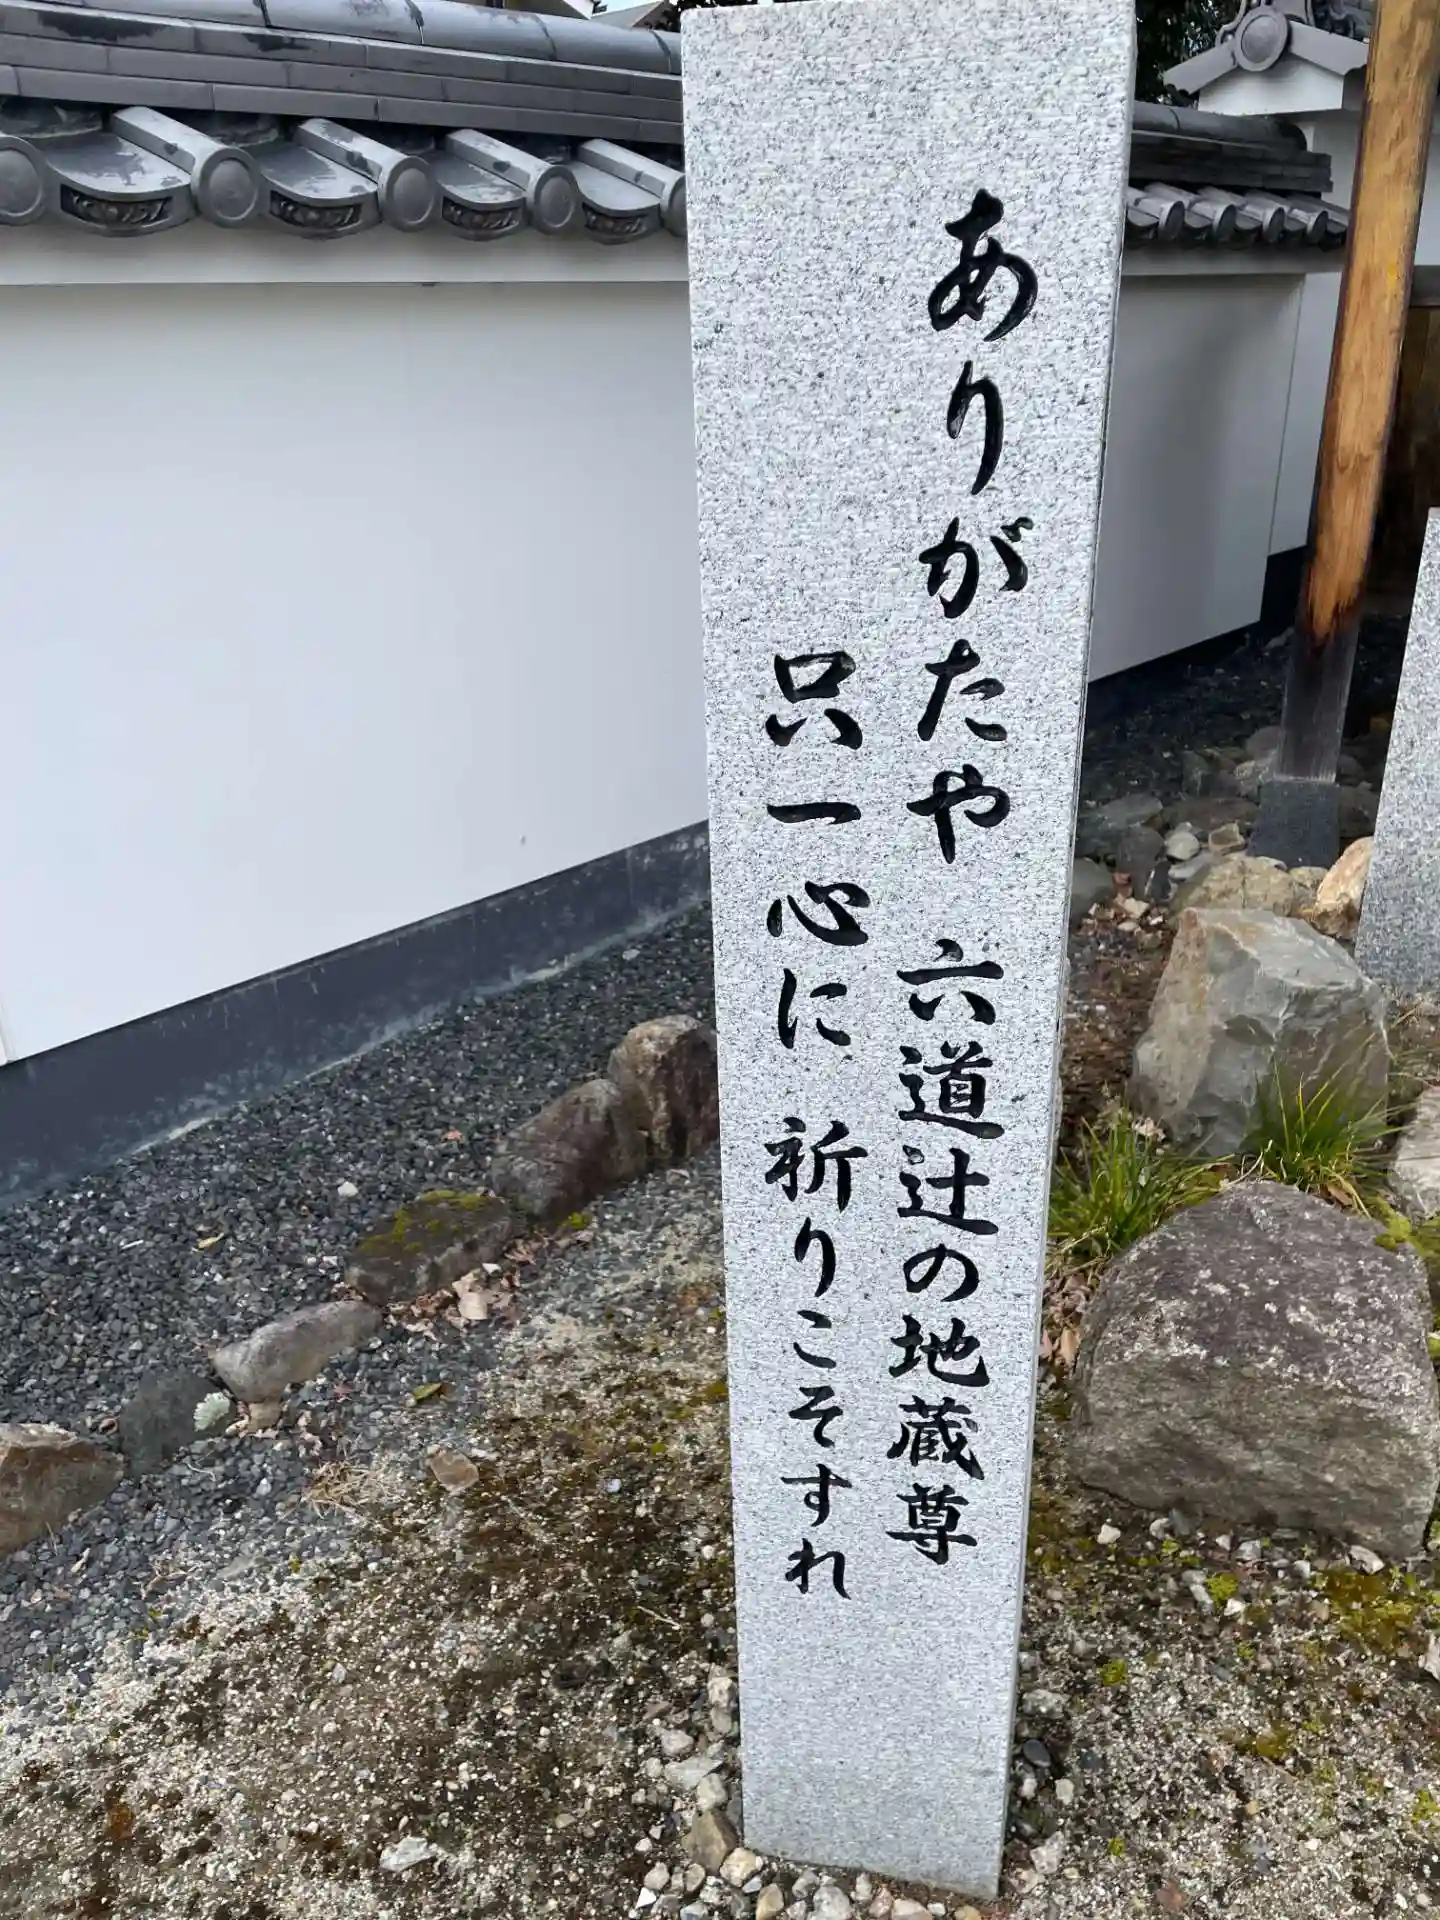 ありがたや 六道辻の地蔵尊
只一心に 祈りこそすれ